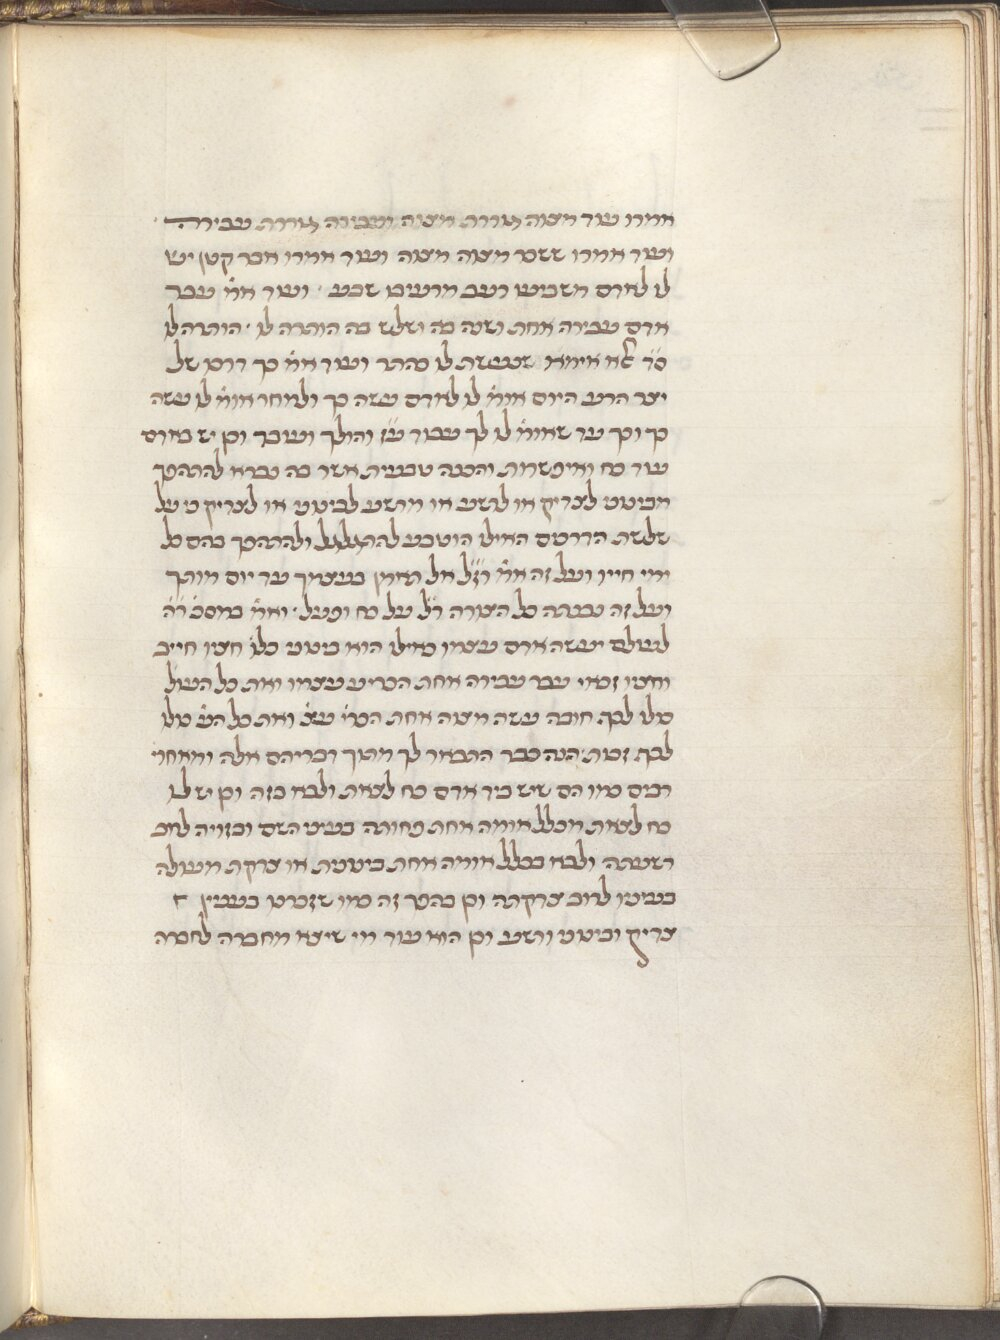 אמרו עוד מצוה גוררת מצוה ועבירה גוררת עבירה
ועוד אמרו ששכר מצוה מצוה ועוד אמרו אבר קטן יש
לו לאדם משביעו רעב מרעיבו שבע ועוד אמ' עבר
אדם עבירה אחת ושנה בה ושלש בה הותרה לו הותרה לו
ס"ד אלא אימא שנעשת לו כהתר ועוד אמ' כך דרכו של
יצר הרע היום אומ' לו לאדם עשה כך ולמחר אומ' לו עשה
כך וכך עד שאומ' לו לך עבוד ע"ז והולך ועובד וכן יש באדם
עוד כח ואיפשרות והכנה טבעית אשר בה נברא להתהפך
מבינוני לצדיק או לרשע או מרשע לבינוני או לצדיק כי על
שלשת הדרכים האילו הוטבע להתגלגל ולהתהפך בהם כל
ימי חייו ועל זה אמ' רז"ל אל תאמן בעצמך עד יום מותך
ועל זה נבנתה כל התורה ר"ל על כח ופעל ואמ' במסכ' ר"ה
לעולם יעשה אדם עצמו כאילו הוא בינוני כלו' חציו חייב
וחציו זכאי עבר עבירה אחת הכריע עצמו ואת כל העול'
כולו לכף חובה עשה מצוה אחת הכרי' עצ' ואת כל הע' כולו
לכף זכות הנה כבר התבאר לך מתוך דבריהם אלה ומאחרי
רבים כמו הם שיש ביד אדם כח לצאת ולבא בזה וכן יש לו
כח לצאת מכלל אומה אחת פחותה בעיני השם ובזויה לרוב
רשעתה ולבא בכלל אומה אחת בינונית או צדקת מעולה
בעיניו לרוב צדקתה וכן בהפך זה כמו שזכרנו בענין
צדיק ובינוני ורשע וכן הוא עוד מי שיצא מחברה לחברה